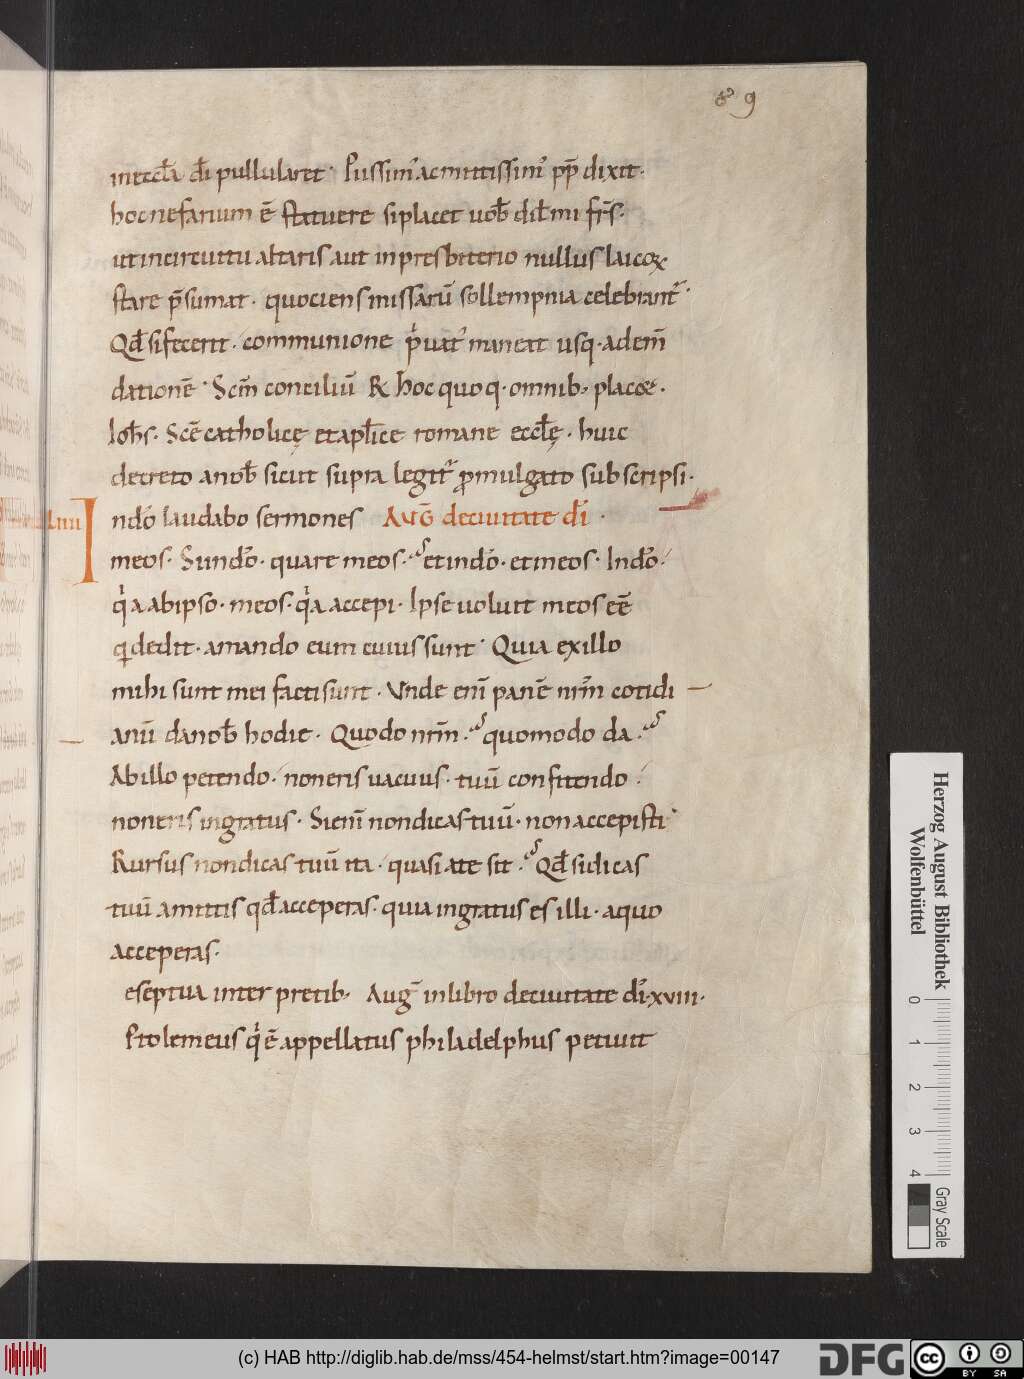 & 9
ineccl̄a di̅ pullularet. Piissim᾽ ac mitissim᾽ pp̄ dixit.
hoc nefarium ē statuere si placet uob̄ dil̄mi fr̄s.
ut in circuitu altaris aut in presbiterio nullus laicoꝝ
stare p̄sumat. quociens missarū sollempnia celebrant᾽.
Qd̄ si fecerit. communione p̍uat᾽ maneat usq. ad em̄
dationē. Sc̄m conciliū R hoc quoq. omnib; placet.
Ioh̄s. Scē catholicę et apl̄ice romane eccl̄ę. huic
decreto a nob̄ sicut supra legit᾽ ꝓmulgato subscripsi.
Indō laudabo sermones AUḠ de ciuitate di̅.
LIIII
meos. Si in dō. quare meos. et in dō. et meos. In dō.
q̍a ab ipso. meos. q̍a accepi. Ipse uoluit meos eē
qui dedit. amando eum cuius sunt. Quia ex illo
mihi sunt mei facti sunt. Unde eni̅ panē nr̄m cotidi
anū da nob̄ hodie. Quodo nr̄m. quomodo da.
Ab illo petendo. non eris uacuus. tuū confitendo.
non eris ingratus. Si eni̅ non dicas tuū. non accepisti.
Rursus non dicas tuū ita. quasi a te sit. Qd̄ si dicas
tuū amittis qd̄ acceperas. quia ingratus es illi. a quo
acceperas.
e septuaginter pretib; Aug̅ in libro de ciuitate di̅. xviii.
Ptolemeus q̍ ē appellatus philadelphus petiuit
Herzog August Bibliothek
Wolfenbüttel
0 1 2 3 4
Gray Scale
(c) HAB http://diglib.hab.de/mss/454-helmst/start.htm?image=00147
DFG
cc BY SA